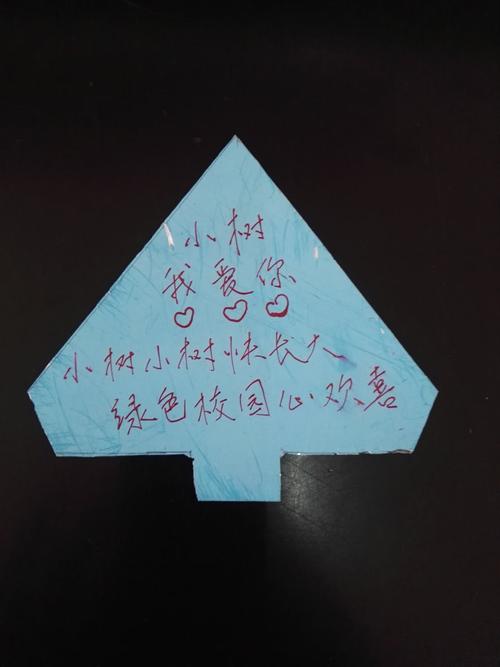 小树
我爱你
小树小树快长大
绿色校园心欢喜